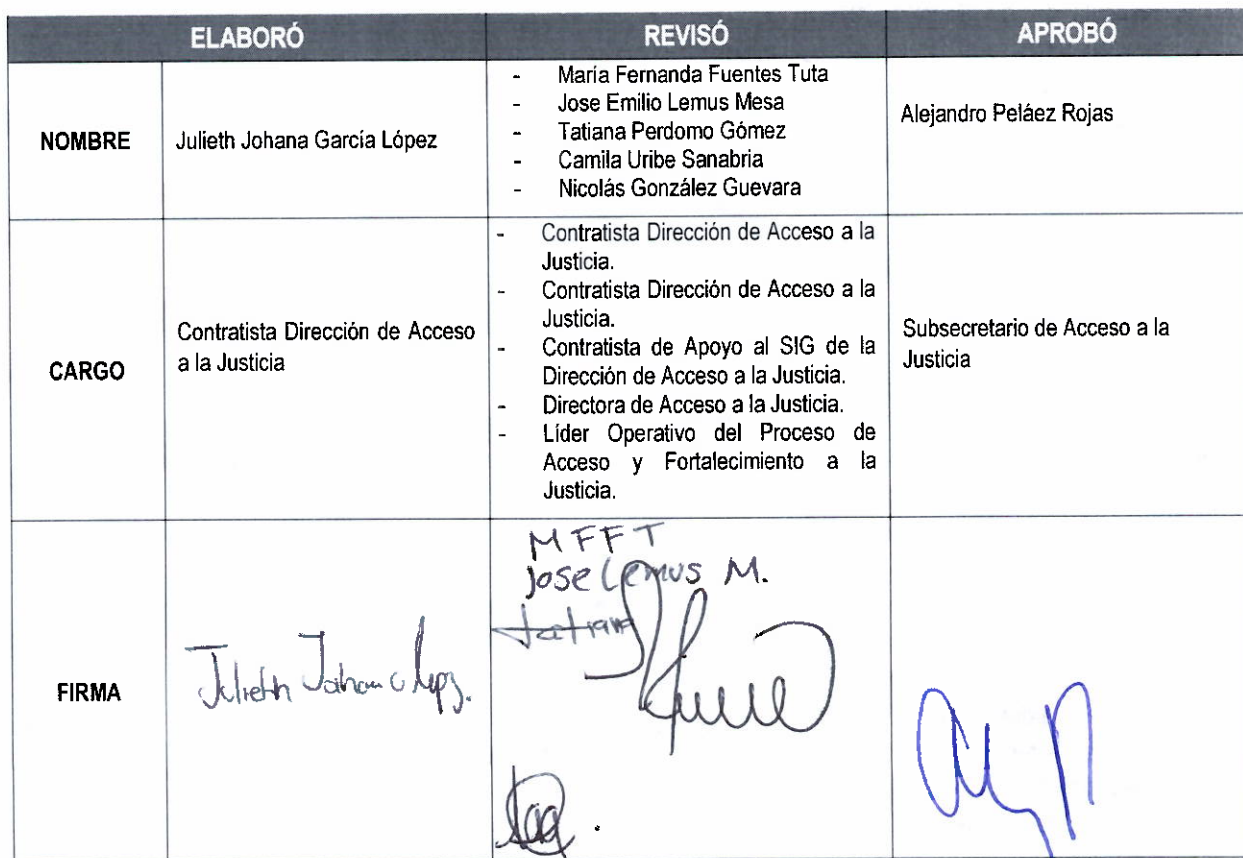 ELABORÓ REVISÓ APROBÓ
NOMBRE
Julieth Johana García López
- María Fernanda Fuentes Tuta
- Jose Emilio Lemus Mesa
- Tatiana Perdomo Gómez
- Camila Uribe Sanabria
- Nicolás González Guevara
Alejandro Peláez Rojas
CARGO
Contratista Dirección de Acceso
a la Justicia
- Contratista Dirección de Acceso a la
Justicia.
- Contratista Dirección de Acceso a la
Justicia.
- Contratista de Apoyo al SIG de la
Dirección de Acceso a la Justicia.
- Directora de Acceso a la Justicia.
- Líder Operativo del Proceso de
Acceso y Fortalecimiento a la
Justicia.
Subsecretario de Acceso a la
Justicia
FIRMA
Julieth Johana
MFFT
Jose Lemus M.
Tatiana